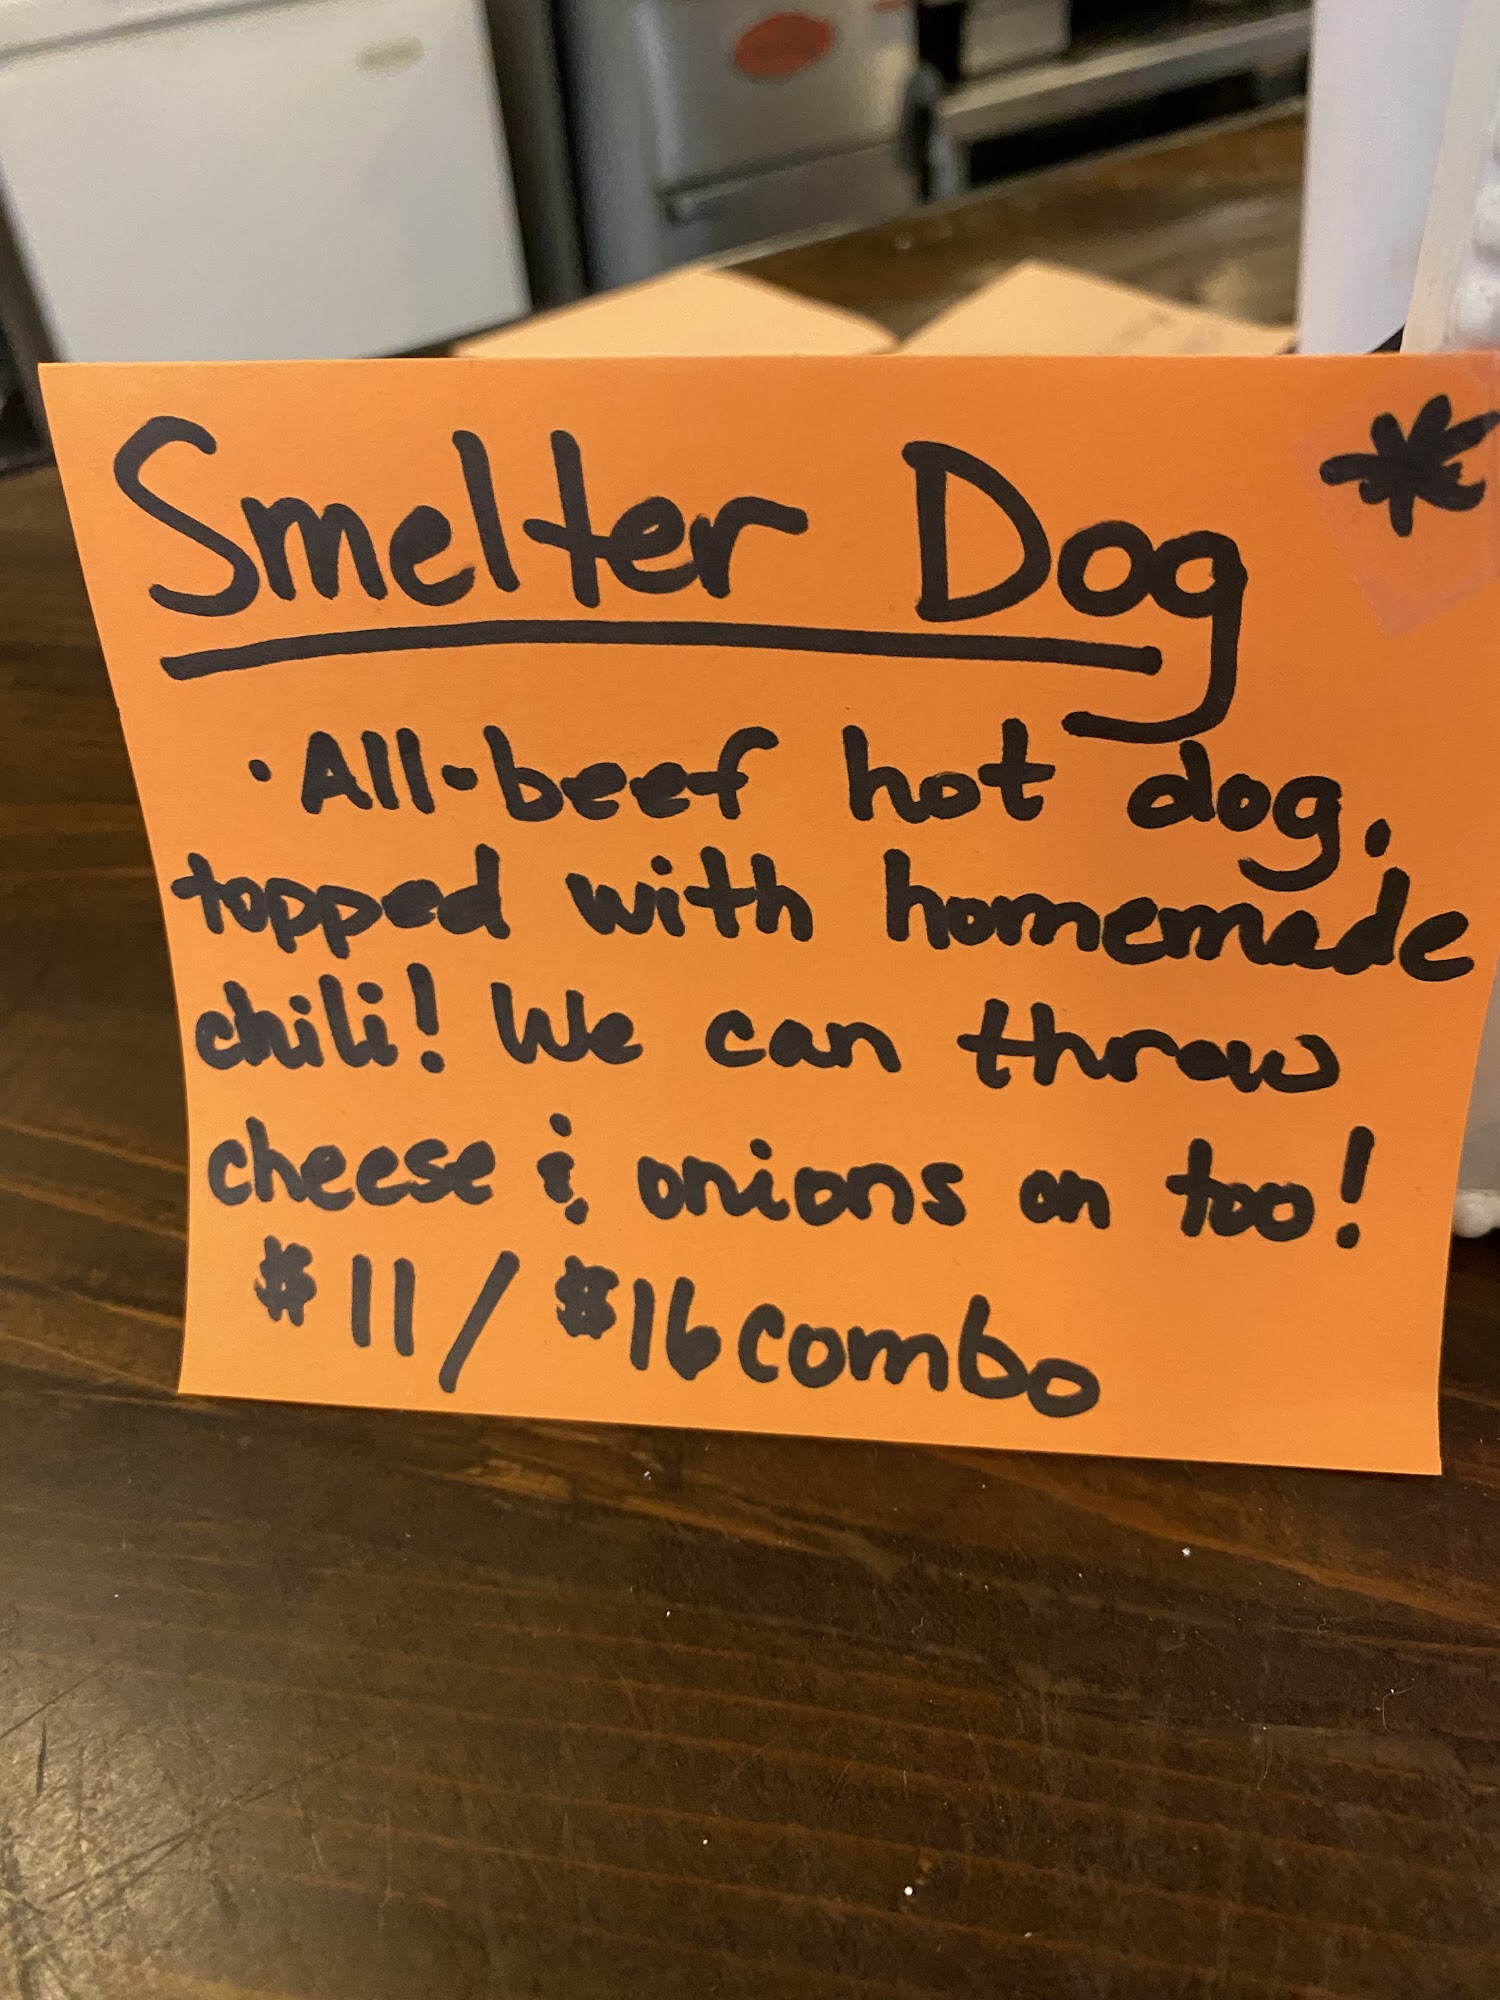 Smelter Dog *
· All-beef hot dog,
topped with homemade
chili! We can throw
cheese & onions on too!
$11/$16 combo